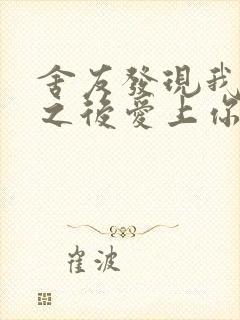 舍友發現我
之後愛上你
崔波